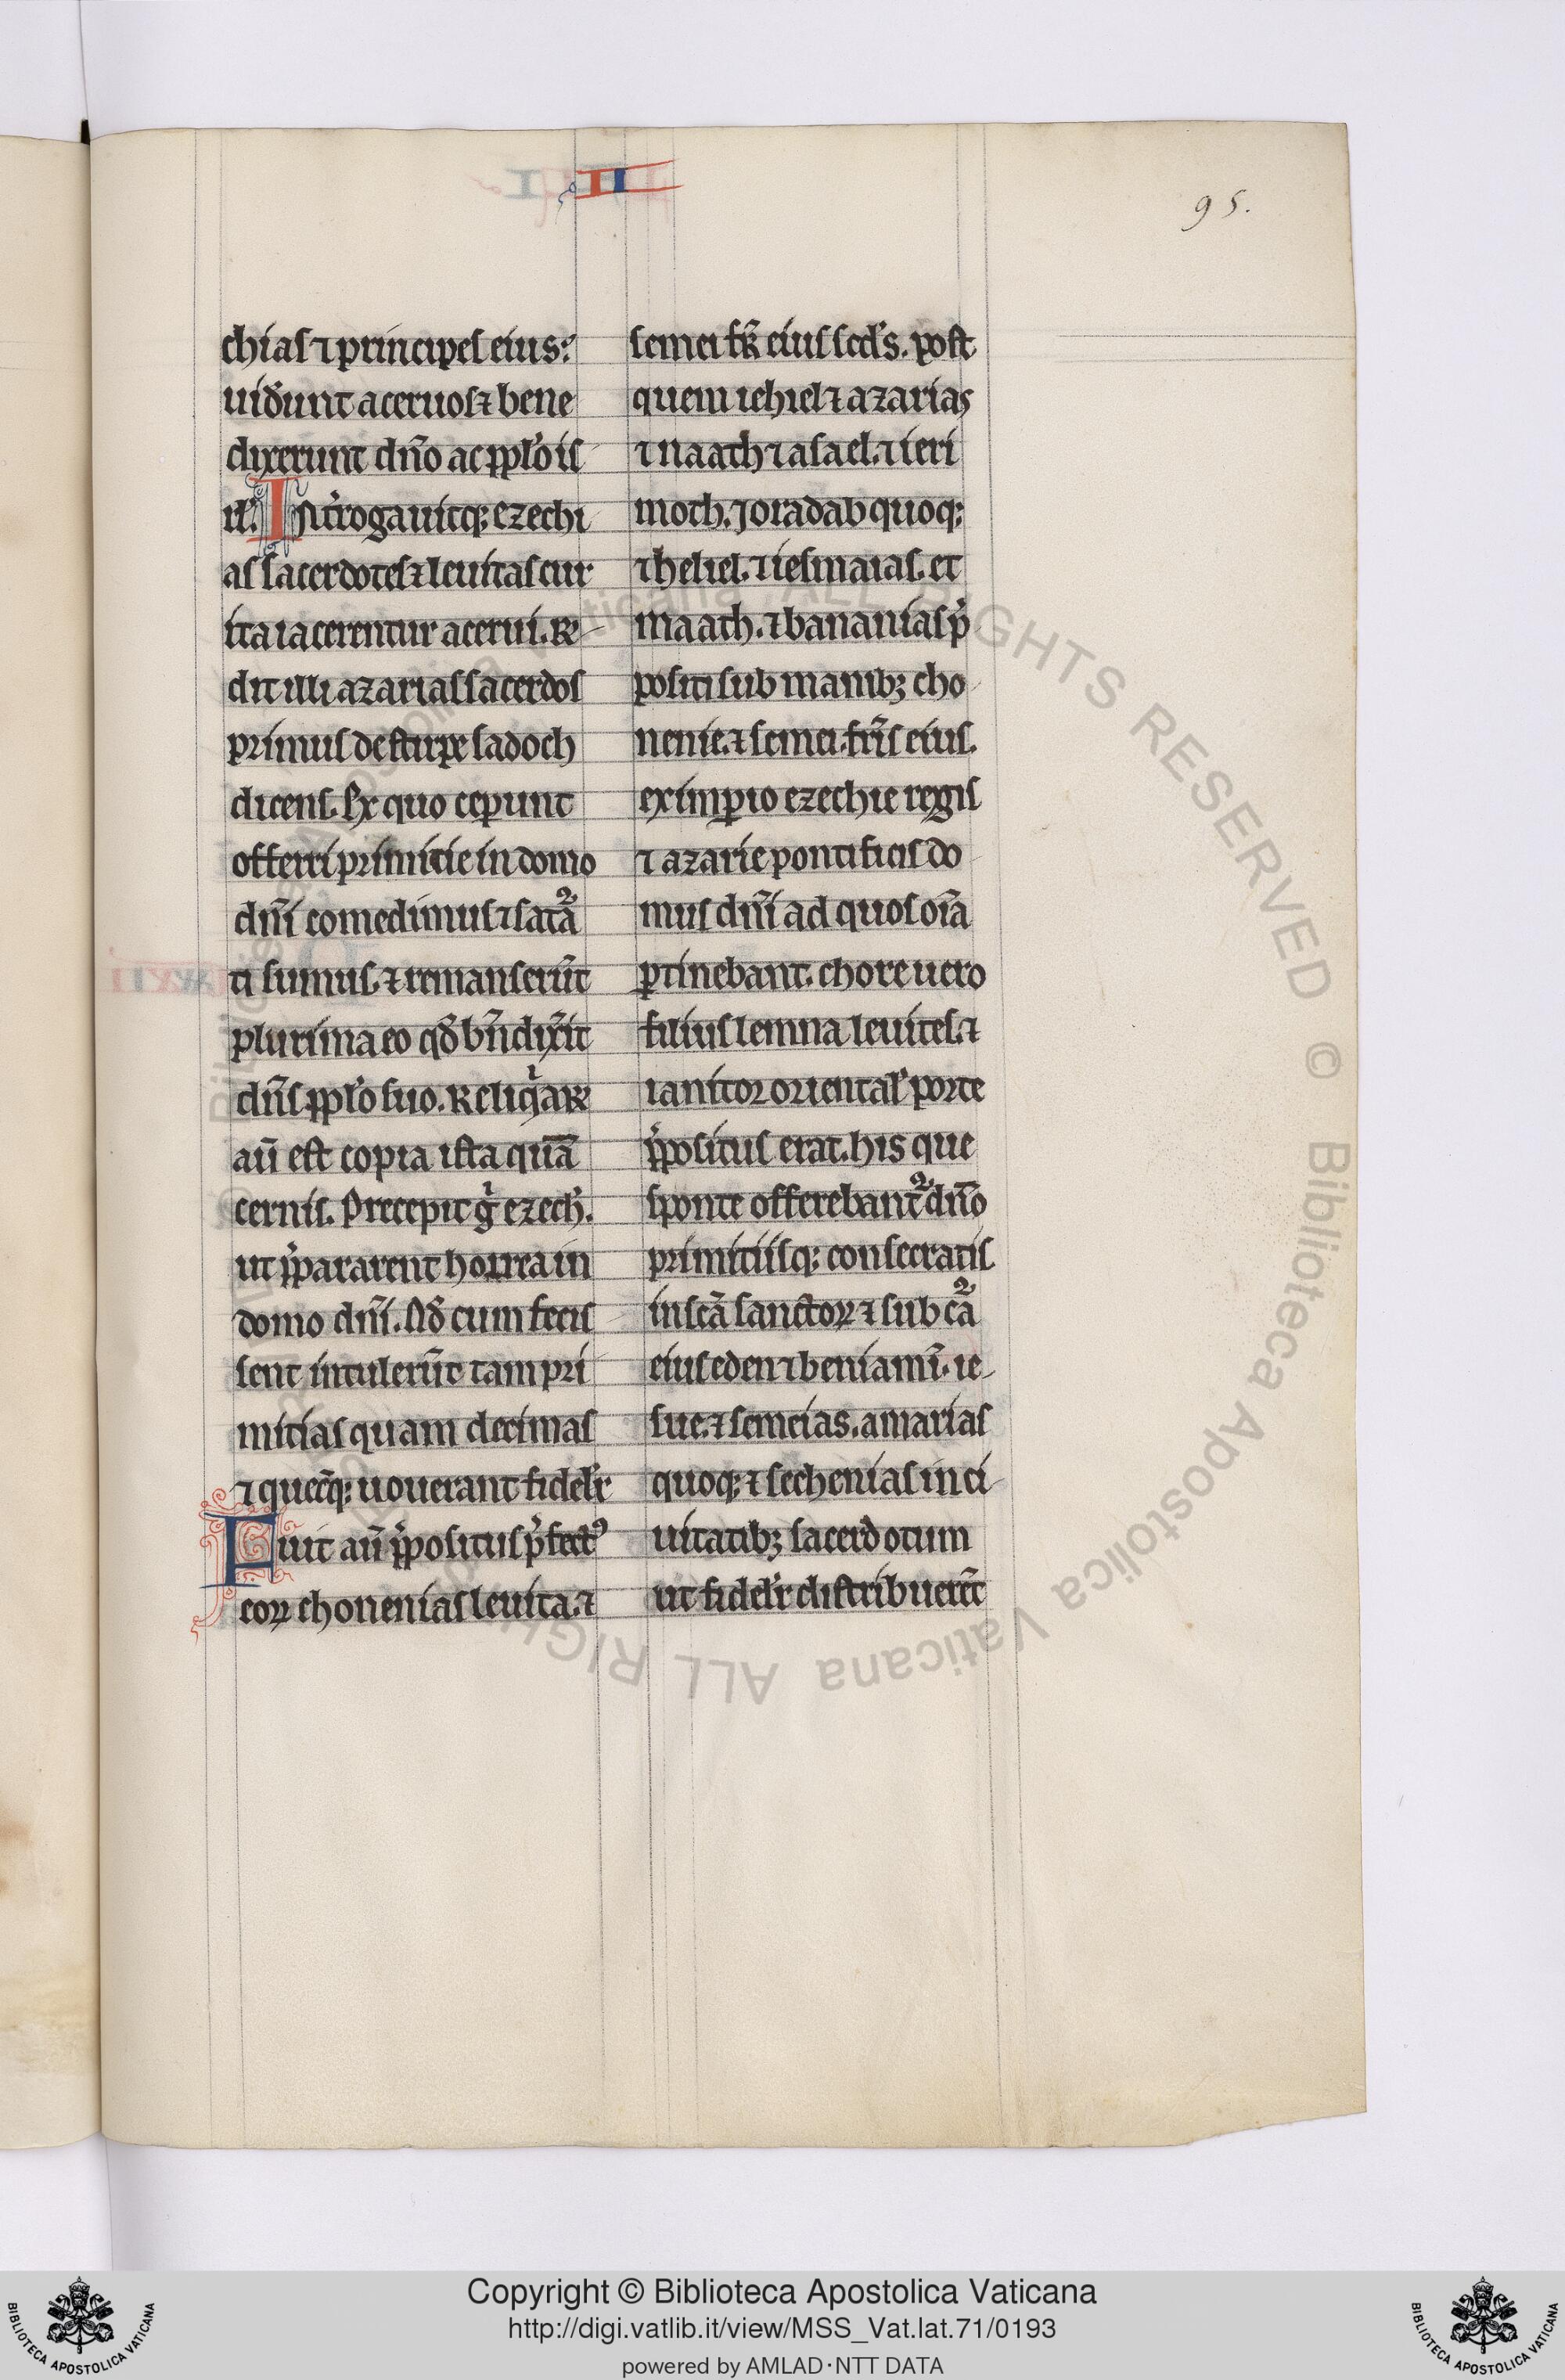 II
95.
chias ⁊ principes eius:
uid̾unt aceruos ⁊ bene
dixerunt dn̄o ac pp̄lo is
rl̾. Int̾rogauitq; ezechi
as sacerdotes ⁊ leuitas cur
ita iacerentur acerui. Rn̄
dit illi azarias sacerdos
primus de stirpe sadoch
dicens. Ex quo ceꝑunt
offerri primitie in domo
dn̄i comedimus ⁊ satᷓa
ti sumus. ⁊ remanserūt
plurima eo qd̾ bn̄dixit
dn̄s pp̄lo suo. Reliqͥarū
aū est copia ista quā
cernis. Precepit gͥ ezech̾.
ut p̾pararent horrea in
domo dn̄i. Qd̾ cum fecis
sent intulerūt tam pri
mitias quam decimas
⁊ quecūq; uouerant fidelr̾
Fuit aū p̾positus p̾fectꝰ
eoꝝ chonenias leuita. ⁊
semei fr̄ eius scds̾. post
quem iehiel ⁊ azarias
⁊ naath ⁊ asael. ⁊ ieri
moth. Joradab quoq;
⁊ heliel. ⁊ iesmaias. et
maath. ⁊ bananias p̾
positi sub manibꝫ cho
nenie. ⁊ semei fr̄is eius.
ex imꝑio ezechie regis
⁊ azarie pontificis do
mus dn̄i ad quos oīa
ꝑtinebant. chore uero
filius iemna leuites. ⁊
ianitor oriental̾ porte
p̾positus erat. his que
sponte offerebant᷑ dn̄o
primitiisq; consecratis
in scā sanctoꝝ ⁊ sub cᷓa
eius eden ⁊ beniamī. ie
sue. ⁊ semeias. amarias
quoq; ⁊ sechenias in ci
uitatibꝫ sacerdotum
ut fidelr̾ distribuerēt
Copyright © Biblioteca Apostolica Vaticana
http://digi.vatlib.it/view/MSS_Vat.lat.71/0193
powered by AMLAD·NTT DATA
BIBLIOTECA APOSTOLICA VATICANA
BIBLIOTECA APOSTOLICA VATICANA